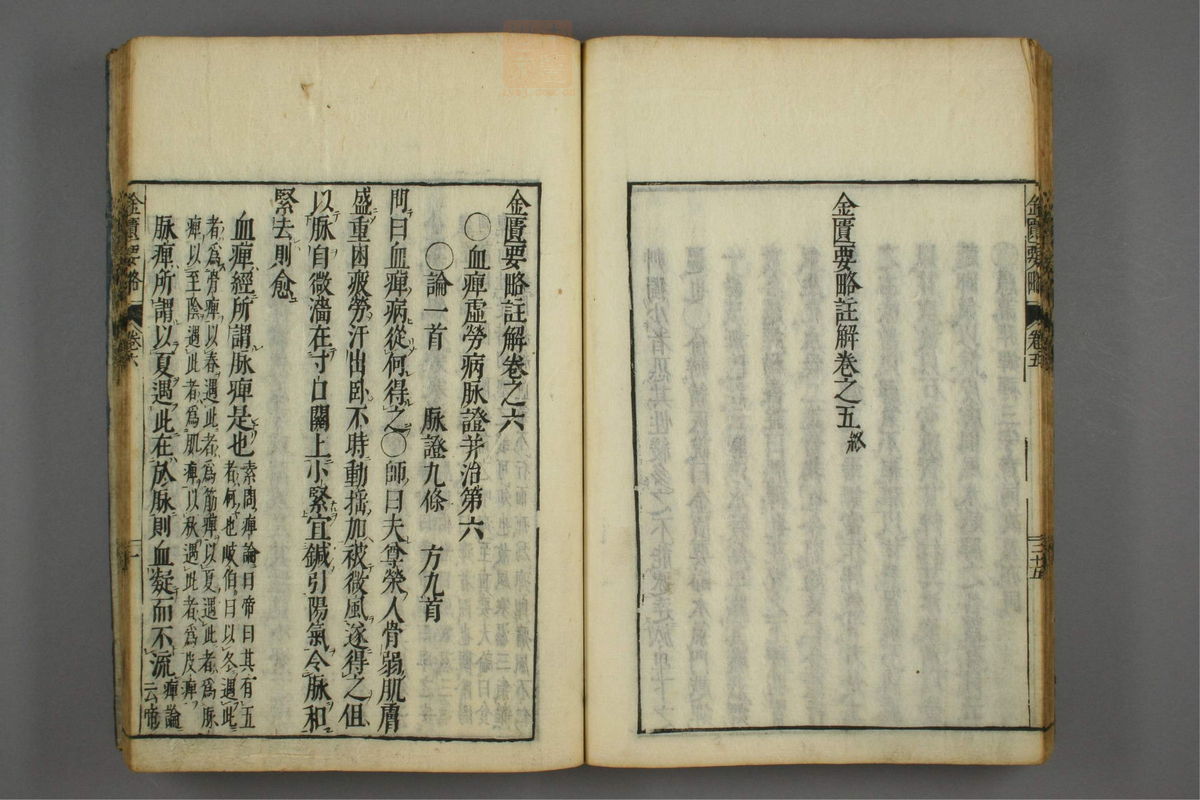 金匱要略
卷五
二十五
金匱要略註解卷之五終
金匱要略註解卷之六
〇血痺虛勞病脉證并治第六
〇論一首　脉證九條　方九首
問曰血痺病從何得之〇師曰夫尊榮人骨弱肌膚
盛重困疲勞汗出臥不時動搖加被微風遂得之但
以脉自微濇在寸口關上小緊宜鍼引陽氣令脉和
緊去則愈
血痺經所謂脉痺是也素問痺論曰帝曰其有五
者何也岐伯曰以冬遇此
者爲骨痺以春遇此者爲筋痺以夏遇此者爲脉
痺以至陰遇此者爲肌痺以秋遇此者爲皮痺
脉痺所謂以夏遇此在於脉則血凝而不流痺論
云帝
金匱要略
卷六
一